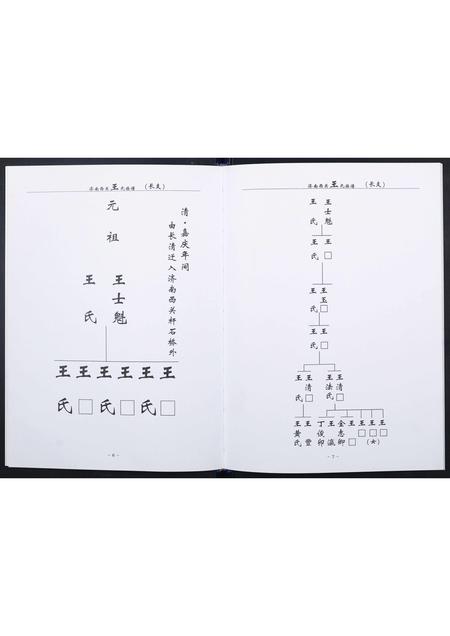 济南西关王氏族谱 (长支)
元祖
清·嘉庆年间
由长清迁入济南西关杆石桥外
王士魁
王氏
王 王 王 王 王 王
氏 □ 氏 □ 氏 □
- 6 -
济南西关王氏族谱 (长支)
王士魁
王氏
王□
王氏
王玉□
王氏
王□
王氏
王清□
王法氏
王清□
王氏
王□
王□
王□(女)
王志□
金卿
王俊瀛
丁卯
王豐
王黄氏
- 7 -